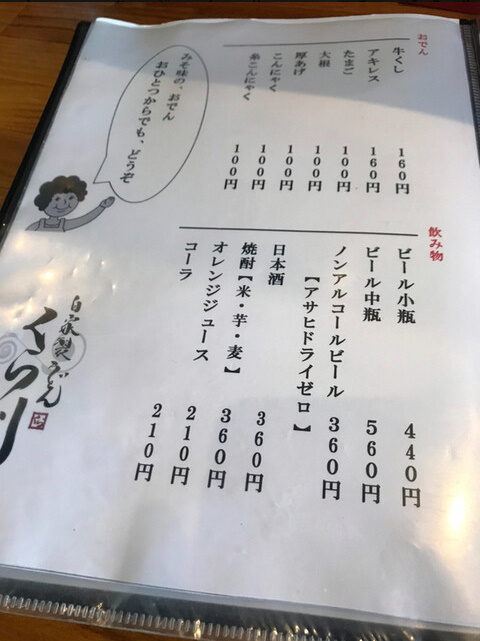 おでん
牛くし 160円
アキレス 160円
たまご 100円
大根 100円
厚あげ 100円
こんにゃく 100円
糸こんにゃく 100円
みそ味の、おでん
おひとつからでも、どうぞ
飲み物
ビール小瓶 440円
ビール中瓶 560円
ノンアルコールビール 360円
【アサヒドライゼロ】
日本酒 360円
焼酎【米・芋・麦】 360円
オレンジジュース 210円
コーラ 210円
自家製うどん
くらり